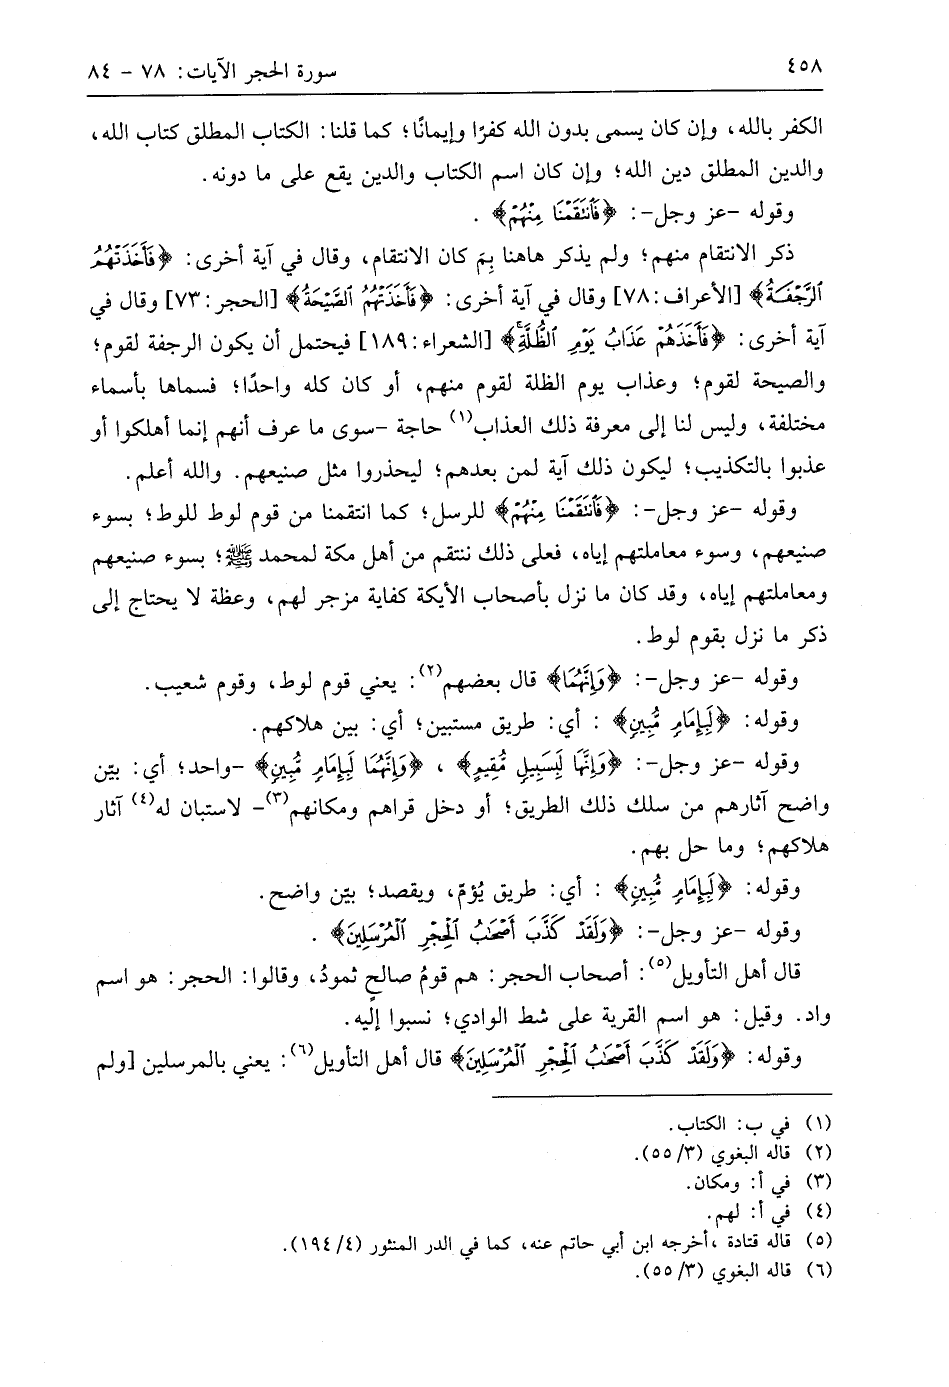 ٤٥٨
سورة الحجر الآيات: ٧٨ - ٨٤
الكفر بالله، وإن كان يسمى بدون الله كفرًا وإيمانًا؛ كما قلنا: الكتاب المطلق كتاب الله،
والدين المطلق دين الله؛ وإن كان اسم الكتاب والدين يقع على ما دونه.
وقوله -عز وجل-: ﴿فَٱنتَقَمْنَا مِنْهُمْ﴾ .
ذكر الانتقام منهم؛ ولم يذكر هاهنا بِمَ كان الانتقام، وقال في آية أخرى: ﴿فَأَخَذَتْهُمُ
ٱلرَّجْفَةُ﴾ [الأعراف: ٧٨] وقال في آية أخرى: ﴿فَأَخَذَتْهُمُ ٱلصَّيْحَةُ﴾ [الحجر: ٧٣] وقال في
آية أخرى: ﴿فَأَخَذَهُمْ عَذَابُ يَوْمِ ٱلظُّلَّةِ﴾ [الشعراء: ١٨٩] فيحتمل أن يكون الرجفة لقوم؛
والصيحة لقوم؛ وعذاب يوم الظلة لقوم منهم، أو كان كله واحدًا؛ فسماها بأسماء
مختلفة، وليس لنا إلى معرفة ذلك العذاب(١) حاجة -سوى ما عرف أنهم إنما أهلكوا أو
عذبوا بالتكذيب؛ ليكون ذلك آية لمن بعدهم؛ ليحذروا مثل صنيعهم. والله أعلم.
وقوله -عز وجل-: ﴿فَٱنتَقَمْنَا مِنْهُمْ﴾ للرسل؛ كما انتقمنا من قوم لوط للوط؛ بسوء
صنيعهم، وسوء معاملتهم إياه، فعلى ذلك ننتقم من أهل مكة لمحمد ﷺ؛ بسوء صنيعهم
ومعاملتهم إياه، وقد كان ما نزل بأصحاب الأيكة كفاية مزجر لهم، وعظة لا يحتاج إلى
ذكر ما نزل بقوم لوط.
وقوله -عز وجل-: ﴿وَإِنَّهُمَا﴾ قال بعضهم(٢): يعني قوم لوط، وقوم شعيب.
وقوله: ﴿لَبِإِمَامٍ مُّبِينٍ﴾ : أي: طريق مستبين؛ أي: بين هلاكهم.
وقوله -عز وجل-: ﴿وَإِنَّهَا لَبِسَبِيلٍ مُّقِيمٍ﴾ ، ﴿وَإِنَّهُمَا لَبِإِمَامٍ مُّبِينٍ﴾ -واحد؛ أي: بيّن
واضح آثارهم من سلك ذلك الطريق؛ أو دخل قراهم ومكانهم(٣)- لاستبان له(٤) آثار
هلاكهم؛ وما حل بهم.
وقوله: ﴿لَبِإِمَامٍ مُّبِينٍ﴾ : أي: طريق يُؤمّ، ويقصد؛ بيّن واضح.
وقوله -عز وجل-: ﴿وَلَقَدْ كَذَّبَ أَصْحَٰبُ ٱلْحِجْرِ ٱلْمُرْسَلِينَ﴾ .
قال أهل التأويل(٥): أصحاب الحجر: هم قومُ صالحٍ ثمودُ، وقالوا: الحجر: هو اسم
واد. وقيل: هو اسم القرية على شط الوادي؛ نسبوا إليه.
وقوله: ﴿وَلَقَدْ كَذَّبَ أَصْحَٰبُ ٱلْحِجْرِ ٱلْمُرْسَلِينَ﴾ قال أهل التأويل(٦): يعني بالمرسلين [ولم
(١) في ب: الكتاب.
(٢) قاله البغوي (٣/ ٥٥).
(٣) في أ: ومكان.
(٤) في أ: لهم.
(٥) قاله قتادة ،أخرجه ابن أبي حاتم عنه، كما في الدر المنثور (٤/ ١٩٤).
(٦) قاله البغوي (٣/ ٥٥).